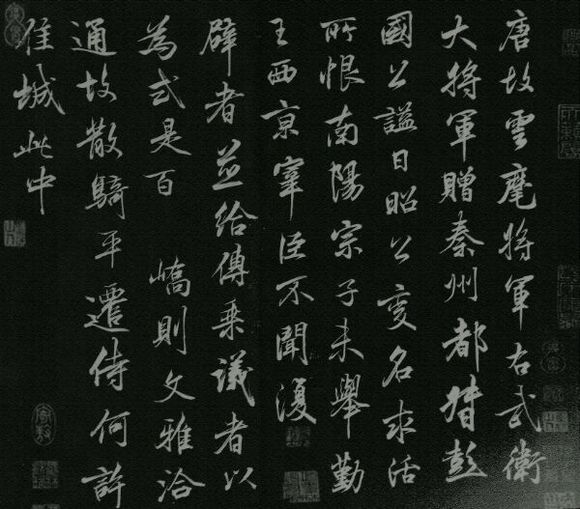 唐故雲麾將軍右武衛
大將軍贈秦州都督彭
國公謚曰昭公變名求活
所恨南陽宗子未舉勤
王西京宰臣不聞復
辟者並給傳乗議者以
為式是百 嶠則文雅洽
通故散騎平遷侍何許
惟城此中